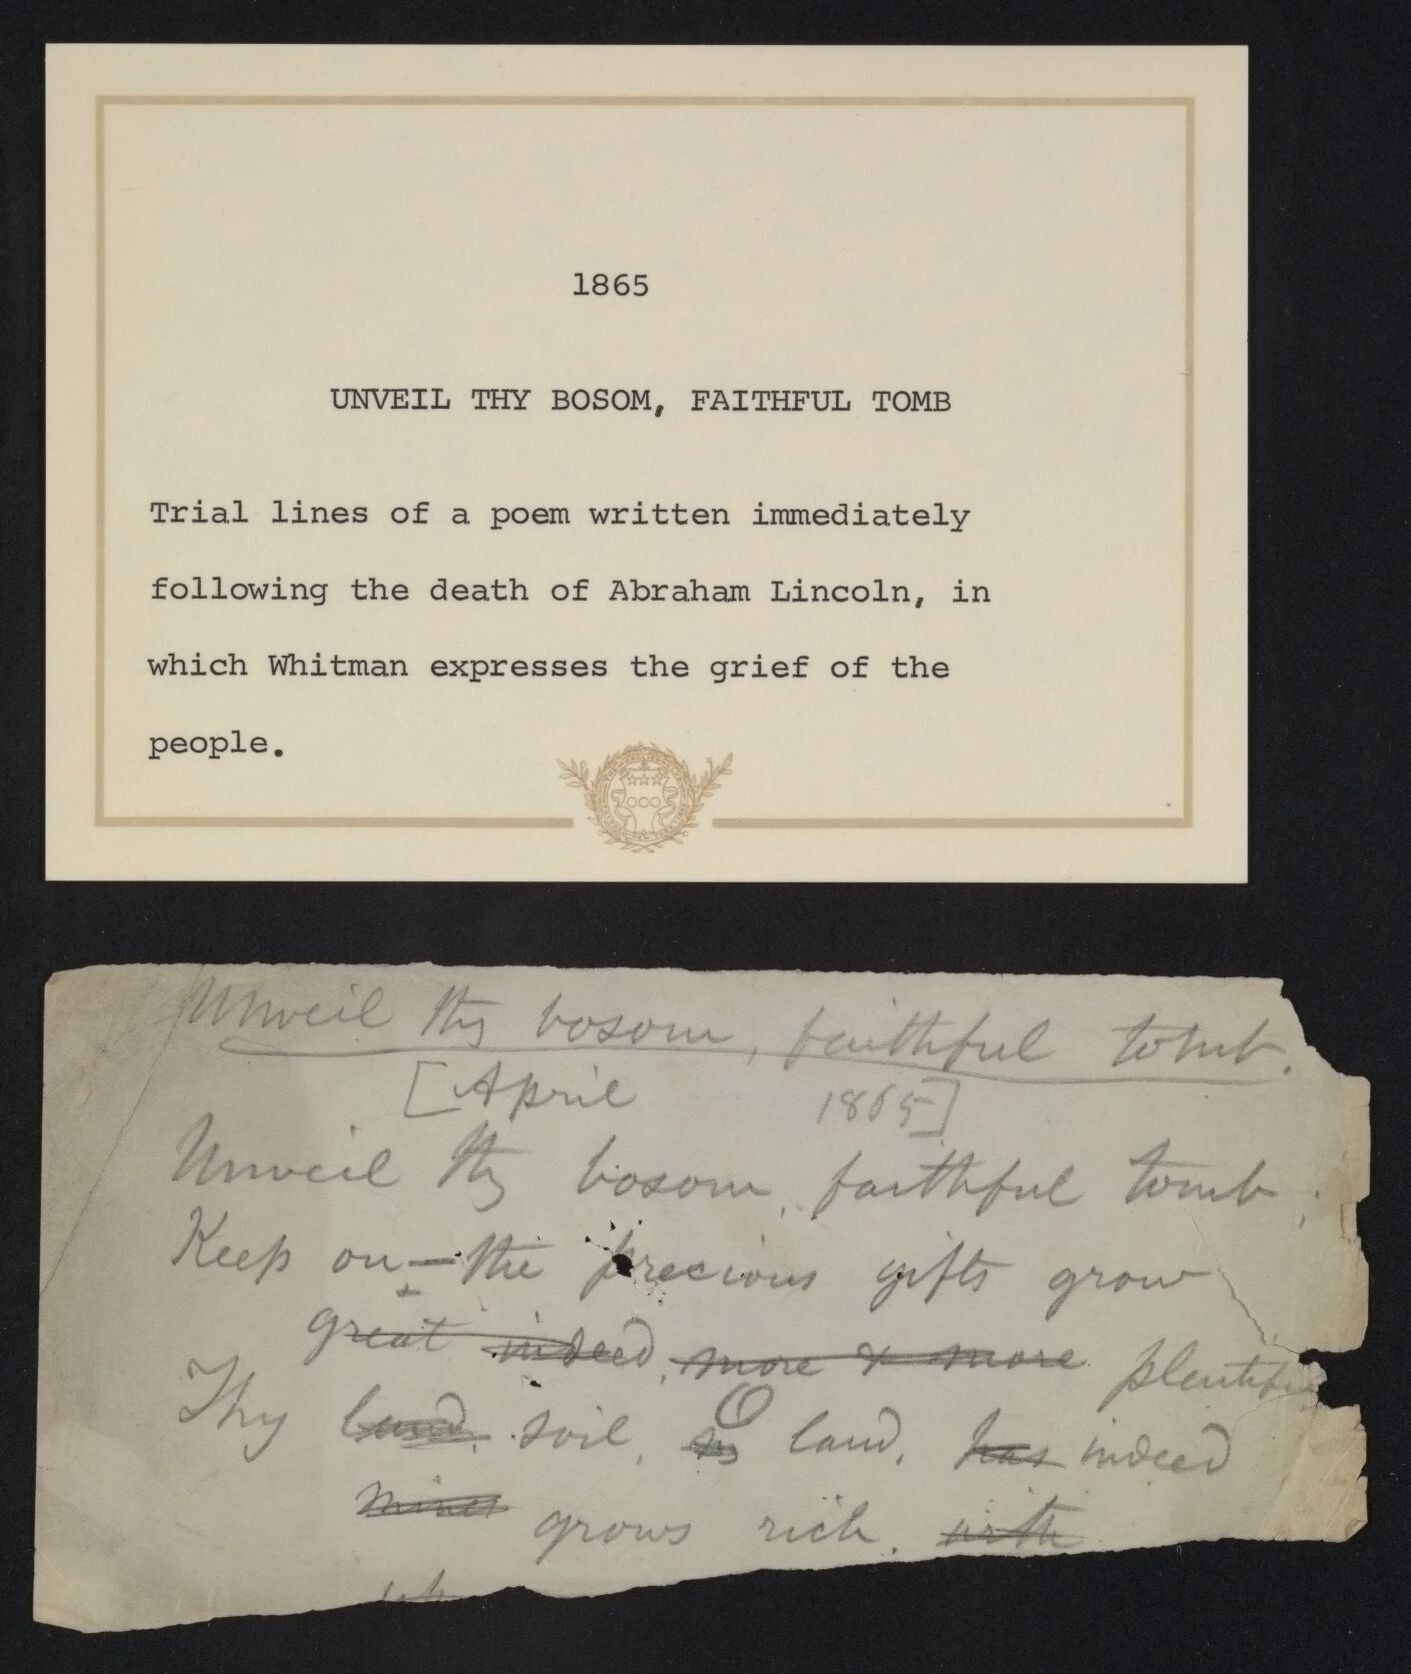 1865
UNVEIL THY BOSOM, FAITHFUL TOMB
Trial lines of a poem written immediately
following the death of Abraham Lincoln, in
which Whitman expresses the grief of the
people.
Unveil thy bosom, faithful tomb.
[April 1865]
Unveil thy bosom, faithful tomb;
Keep on—the precious gifts grow
great indeed, more & more plentiful
O
Thy land, soil, land, has indeed
grows rich. with